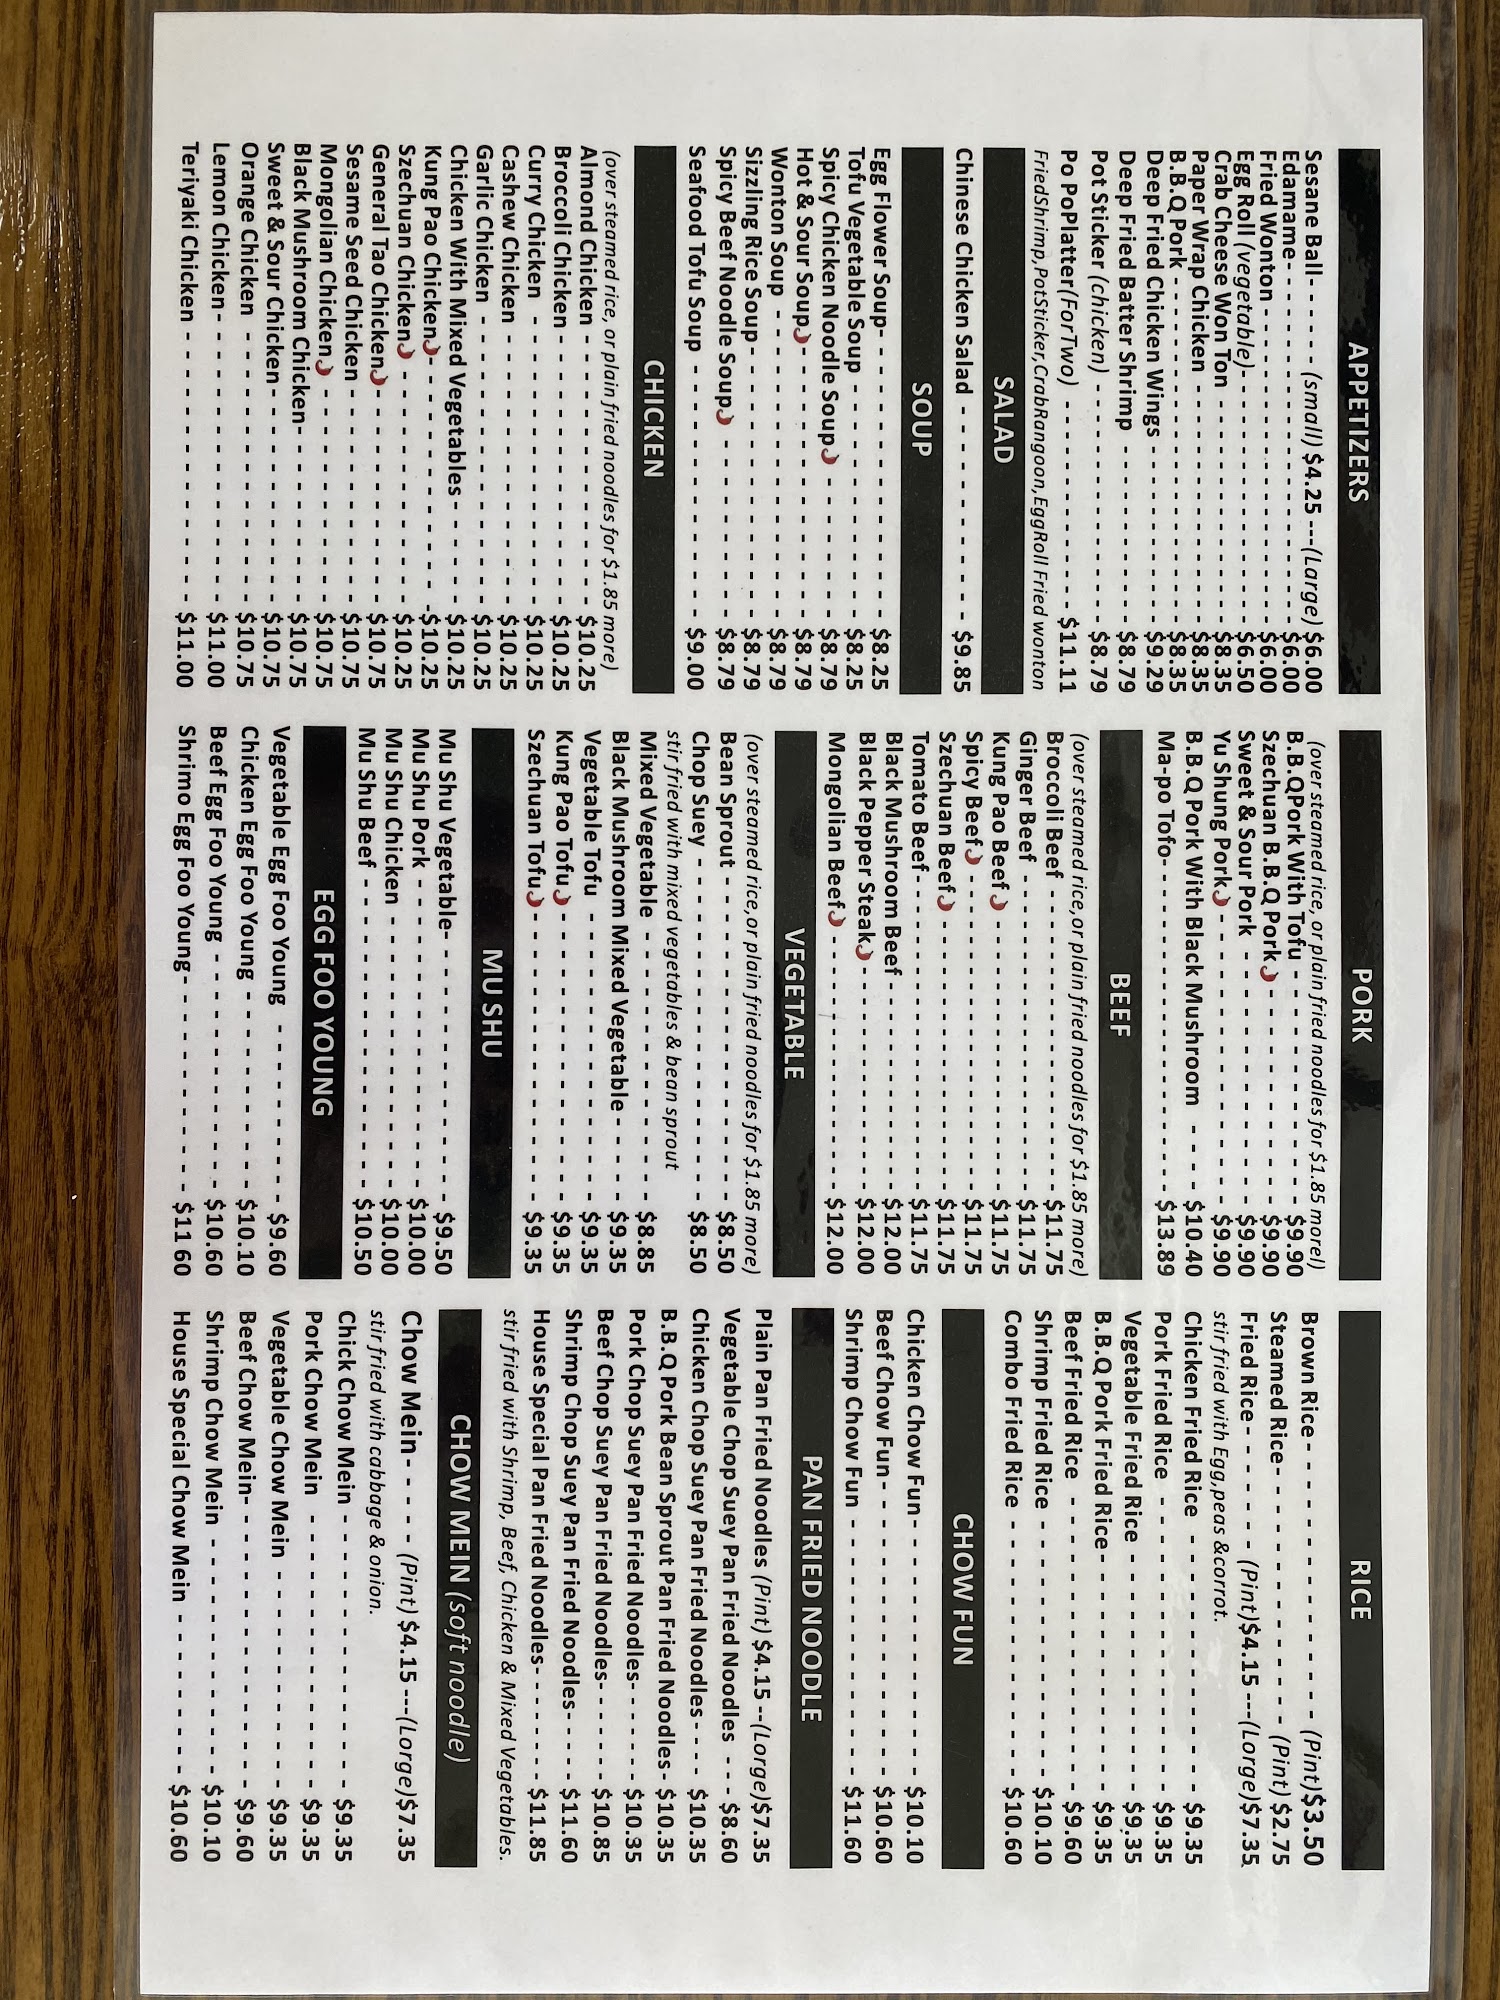 APPETIZERS
Sesane Ball- - - - - (small) $4.25 ---(Large) $6.00
Edamame- - - - - - - - - - - - - - - - - - - - $6.00
Fried Wonton - - - - - - - - - - - - - - - - - - $6.00
Egg Roll (vegetable)- - - - - - - - - - - - - - - $6.50
Crab Cheese Won Ton - - - - - - - - - - - - - - $8.35
Paper Wrap Chicken - - - - - - - - - - - - - - - $8.35
B.B.Q Pork - - - - - - - - - - - - - - - - - - - $8.35
Deep Fried Chicken Wings - - - - - - - - - - - - $9.29
Deep Fried Batter Shrimp - - - - - - - - - - - - $8.79
Pot Sticker (chicken) - - - - - - - - - - - - - - $8.79
Po PoPlatter(ForTwo) - - - - - - - - - - - - - $11.11
FriedShrimp,PotSticker,CrabRangoon,EggRoll Fried wonton
SALAD
Chinese Chicken Salad - - - - - - - - - - - - - $9.85
SOUP
Egg Flower Soup- - - - - - - - - - - - - - - - - $8.25
Tofu Vegetable Soup - - - - - - - - - - - - - - $8.25
Spicy Chicken Noodle Soup - - - - - - - - - - $8.79
Hot & Sour Soup - - - - - - - - - - - - - - - - $8.79
Wonton Soup - - - - - - - - - - - - - - - - - - $8.79
Sizzling Rice Soup - - - - - - - - - - - - - - - - $8.79
Spicy Beef Noodle Soup - - - - - - - - - - - - $8.79
Seafood Tofu Soup - - - - - - - - - - - - - - - $9.00
CHICKEN
(over steamed rice, or plain fried noodles for $1.85 more)
Almond Chicken - - - - - - - - - - - - - - - - $10.25
Broccoli Chicken - - - - - - - - - - - - - - - - $10.25
Curry Chicken - - - - - - - - - - - - - - - - - $10.25
Cashew Chicken - - - - - - - - - - - - - - - - $10.25
Garlic Chicken - - - - - - - - - - - - - - - - - $10.25
Chicken With Mixed Vegetables - - - - - - - $10.25
Kung Pao Chicken- - - - - - - - - - - - - - - -$10.25
Szechuan Chicken - - - - - - - - - - - - - - - $10.25
General Tao Chicken - - - - - - - - - - - - - $10.75
Sesame Seed Chicken - - - - - - - - - - - - - $10.75
Mongolian Chicken - - - - - - - - - - - - - - $10.75
Black Mushroom Chicken- - - - - - - - - - - $10.75
Sweet & Sour Chicken- - - - - - - - - - - - - $10.75
Orange Chicken - - - - - - - - - - - - - - - - $10.75
Lemon Chicken- - - - - - - - - - - - - - - - - $11.00
Teriyaki Chicken - - - - - - - - - - - - - - - - $11.00
PORK
(over steamed rice, or plain fried noodles for $1.85 morel)
B.B.QPork With Tofu - - - - - - - - - - - - - - $9.90
Szechuan B.B.Q Pork - - - - - - - - - - - - - $9.90
Sweet & Sour Pork - - - - - - - - - - - - - - - $9.90
Yu Shung Pork - - - - - - - - - - - - - - - - - $9.90
B.B.Q Pork With Black Mushroom - - - - $10.40
Ma-po Tofo- - - - - - - - - - - - - - - - - - - $13.89
BEEF
(over steamed rice,or plain fried noodles for $1.85 more)
Broccoli Beef - - - - - - - - - - - - - - - - - - $11.75
Ginger Beef - - - - - - - - - - - - - - - - - - - $11.75
Kung Pao Beef - - - - - - - - - - - - - - - - - $11.75
Spicy Beef - - - - - - - - - - - - - - - - - - - $11.75
Szechuan Beef - - - - - - - - - - - - - - - - - $11.75
Tomato Beef- - - - - - - - - - - - - - - - - - - $11.75
Black Mushroom Beef - - - - - - - - - - - - - $12.00
Black Pepper Steak - - - - - - - - - - - - - - $12.00
Mongolian Beef - - - - - - - - - - - - - - - - $12.00
VEGETABLE
(over steamed rice,or plain fried noodles for $1.85 more)
Bean Sprout - - - - - - - - - - - - - - - - - - - $8.50
Chop Suey - - - - - - - - - - - - - - - - - - - - $8.50
stir fried with mixed vegetables & bean sprout
Mixed Vegetable - - - - - - - - - - - - - - - - $8.85
Black Mushroom Mixed Vegetable - - - - - $9.35
Vegetable Tofu - - - - - - - - - - - - - - - - - $9.35
Kung Pao Tofu - - - - - - - - - - - - - - - - - $9.35
Szechuan Tofu - - - - - - - - - - - - - - - - - $9.35
MU SHU
Mu Shu Vegetable- - - - - - - - - - - - - - - - $9.50
Mu Shu Pork - - - - - - - - - - - - - - - - - - $10.00
Mu Shu Chicken - - - - - - - - - - - - - - - - $10.00
Mu Shu Beef - - - - - - - - - - - - - - - - - - $10.50
EGG FOO YOUNG
Vegetable Egg Foo Young - - - - - - - - - - - $9.60
Chicken Egg Foo Young - - - - - - - - - - - - $10.10
Beef Egg Foo Young - - - - - - - - - - - - - - $10.60
Shrimo Egg Foo Young- - - - - - - - - - - - - $11 60
RICE
Brown Rice - - - - - - - - - - - - - - - (Pint)$3.50
Steamed Rice- - - - - - - - - - - - - - (Pint) $2.75
Fried Rice- - - - - - (Pint)$4.15 ---(Lorge)$7.35
stir fried with Egg,peas &corrot.
Chicken Fried Rice - - - - - - - - - - - - - - - $9.35
Pork Fried Rice - - - - - - - - - - - - - - - - - $9.35
Vegetable Fried Rice - - - - - - - - - - - - - - $9.35
B.B.Q Pork Fried Rice- - - - - - - - - - - - - - $9.35
Beef Fried Rice - - - - - - - - - - - - - - - - - $9.60
Shrimp Fried Rice - - - - - - - - - - - - - - - $10.10
Combo Fried Rice - - - - - - - - - - - - - - - $10.60
CHOW FUN
Chicken Chow Fun- - - - - - - - - - - - - - - $10.10
Beef Chow Fun- - - - - - - - - - - - - - - - - $10.60
Shrimp Chow Fun - - - - - - - - - - - - - - - $11.60
PAN FRIED NOODLE
Plain Pan Fried Noodles (Pint) $4.15 --(Lorge)$7.35
Vegetable Chop Suey Pan Fried Noodles - - - $8.60
Chicken Chop Suey Pan Fried Noodles- - - - $10.35
B.B.Q Pork Bean Sprout Pan Fried Noodles- $10.35
Pork Chop Suey Pan Fried Noodles- - - - - - $10.35
Beef Chop Suey Pan Fried Noodles- - - - - - $10.85
Shrimp Chop Suey Pan Fried Noodles- - - - - $11.60
House Special Pan Fried Noodles- - - - - - - $11.85
stir fried with Shrimp, Beef, Chicken & Mixed Vegetables.
CHOW MEIN (soft noodle)
Chow Mein- - - - (Pint) $4.15 ---(Lorge)$7.35
stir fried with cabbage & onion.
Chick Chow Mein - - - - - - - - - - - - - - - - $9.35
Pork Chow Mein - - - - - - - - - - - - - - - - $9.35
Vegetable Chow Mein - - - - - - - - - - - - - $9.35
Beef Chow Mein- - - - - - - - - - - - - - - - - $9.60
Shrimp Chow Mein - - - - - - - - - - - - - - $10.10
House Special Chow Mein - - - - - - - - - - $10.60